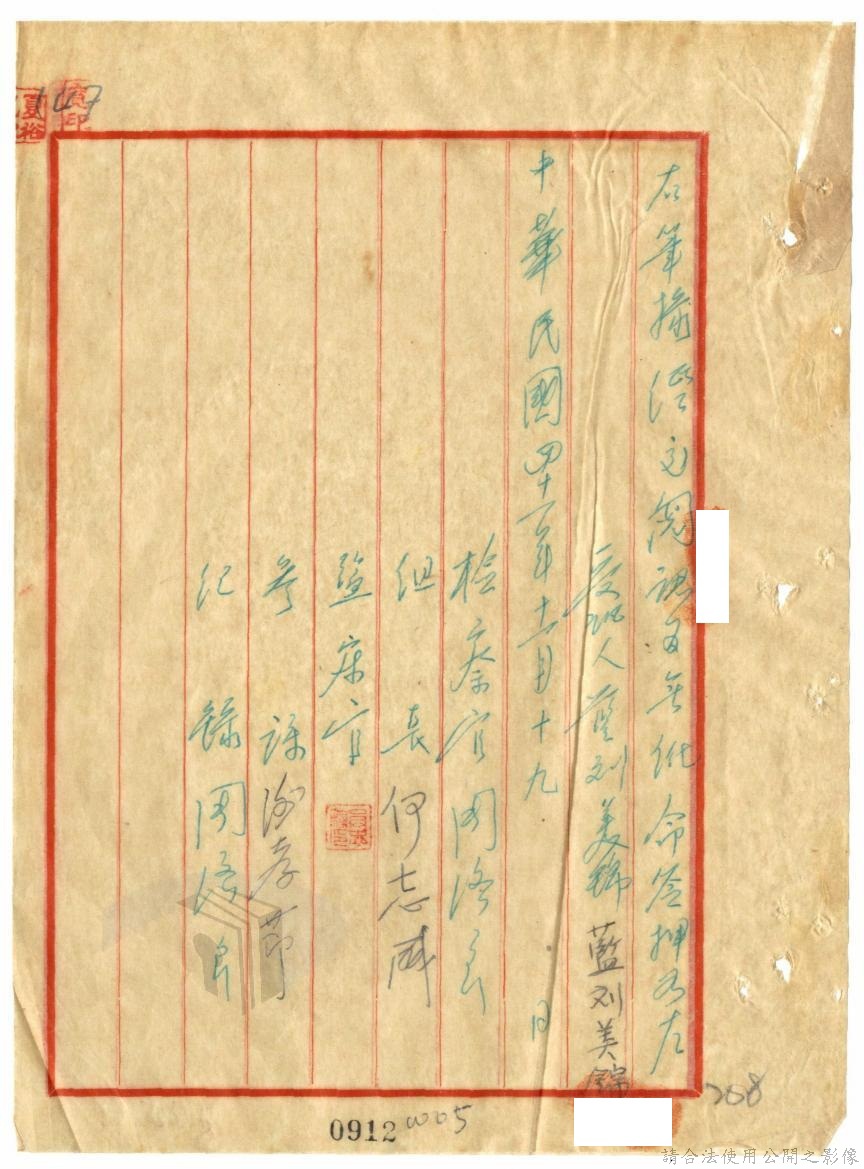 右筆錄經交閱認為無訛命簽押於左
受訊人藍刘美錦 藍刘美錦
中華民國四十一年十一月十九日
檢察官 周
組長 何志威
監察官
參謀 孝節
紀錄 周
0912
208
請合法使用公開之影像